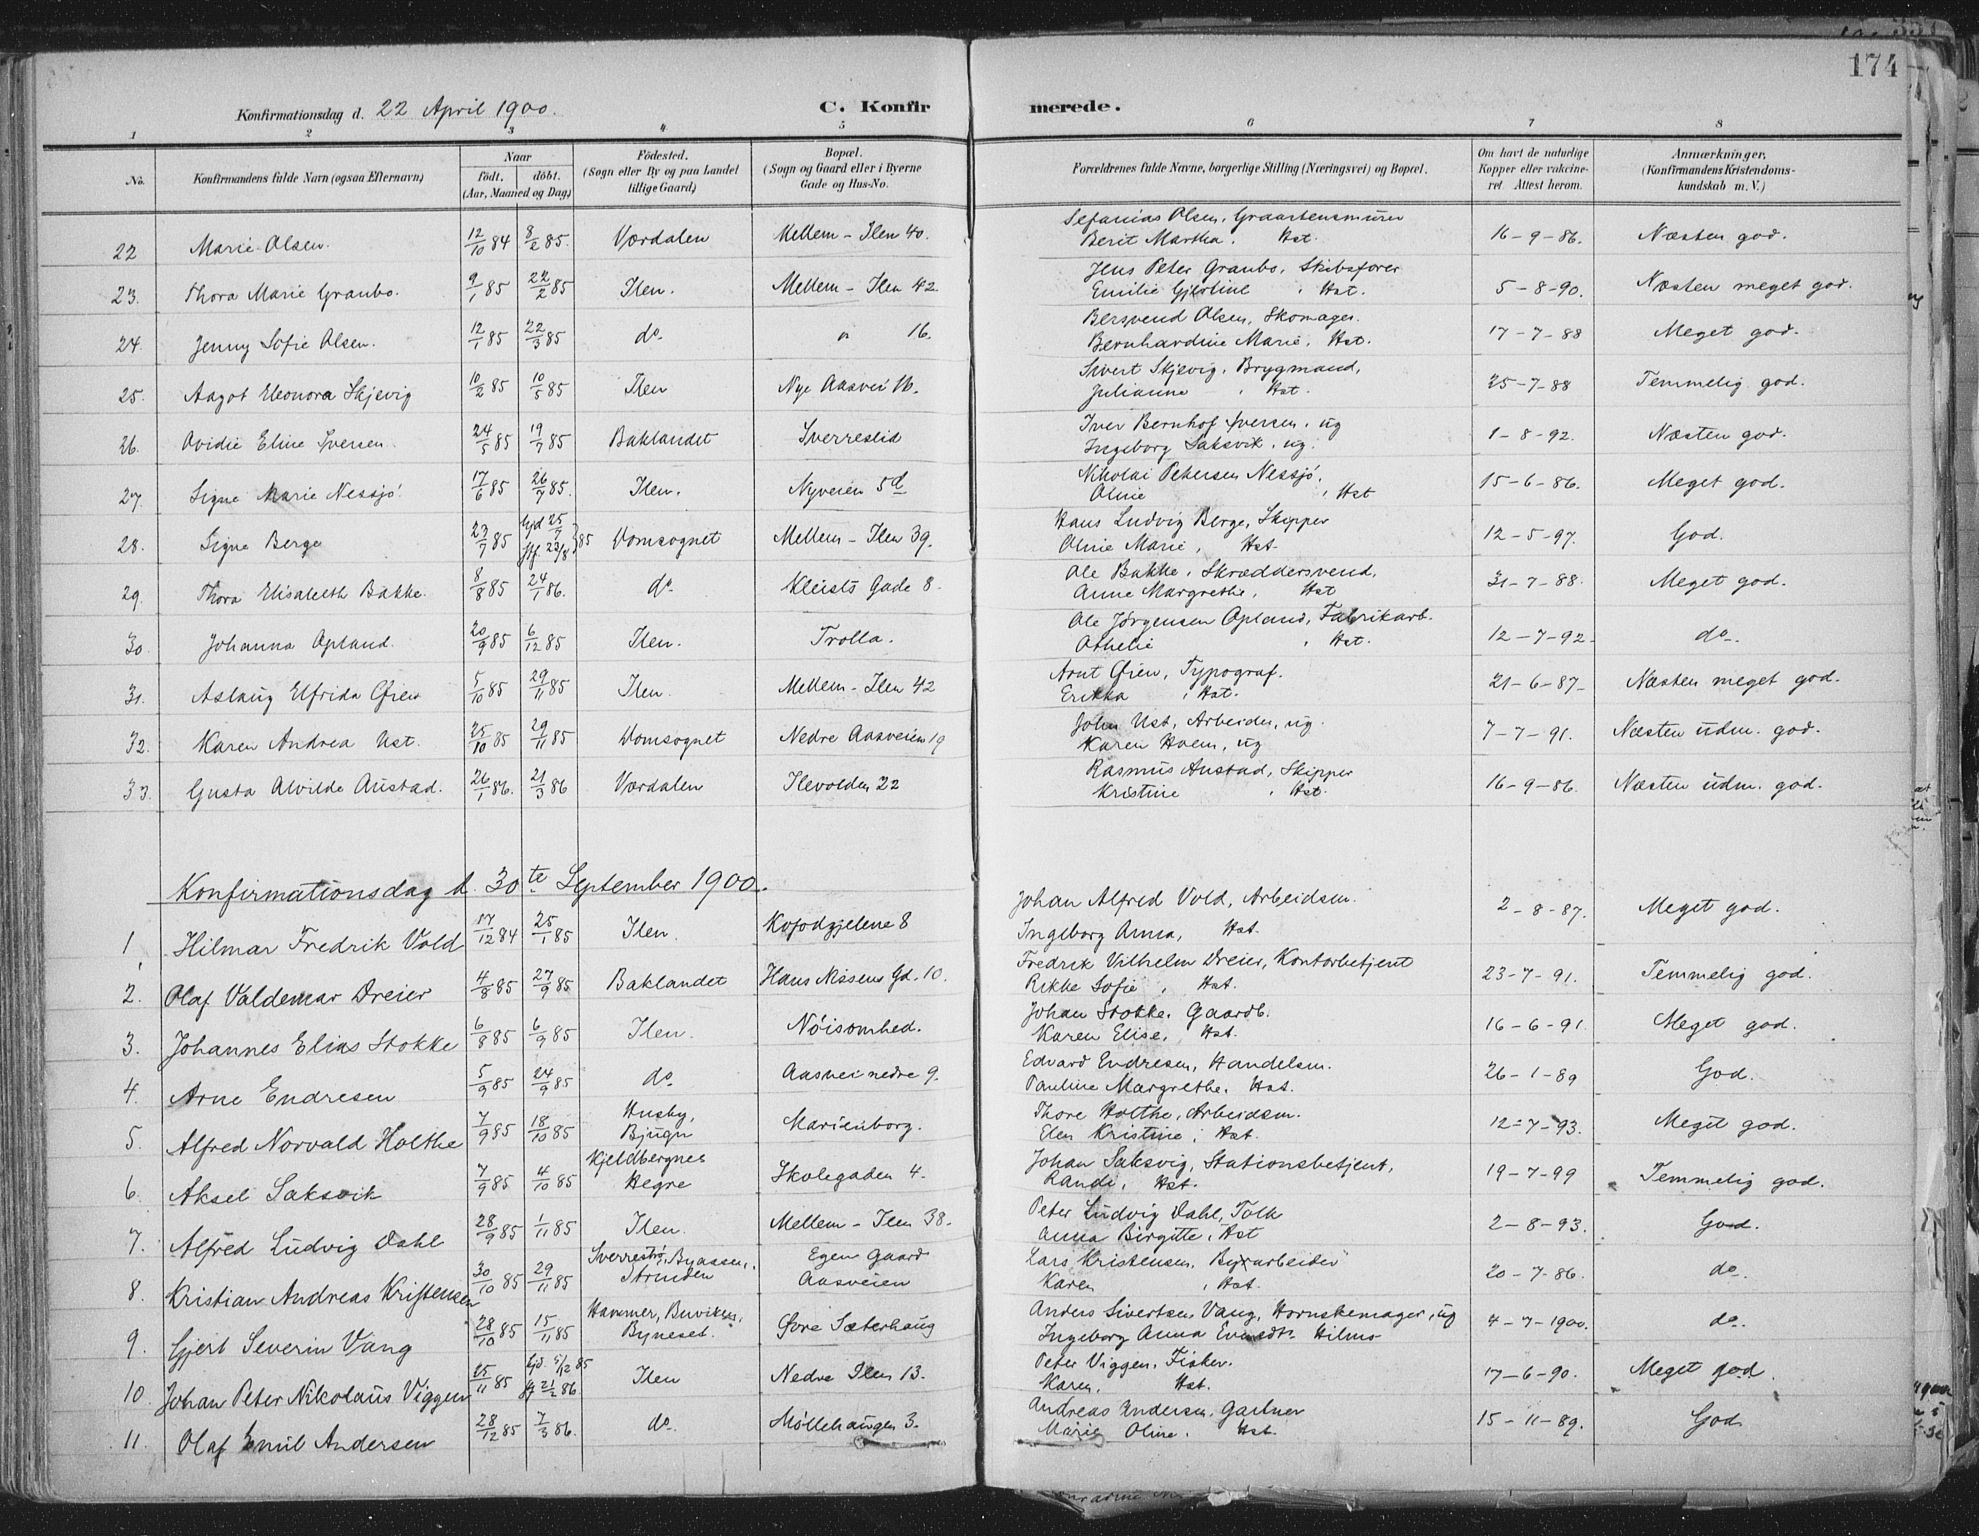 174
Konfirmationsdag d. 22 April 1900.
C. Konfirmerede.
1 2 3 4 5 6 7 8
No. Konfirmandens fulde Navn (ogsaa Efternavn) Naar født. døbt. (Aar, Maaned og Dag) Fødested. (Sogn eller By og paa Landet tillige Gaard) Bopæl. (Sogn og Gaard eller i Byerne Gade og Hus-No. Forældrenes fulde Navne, borgerlige Stilling (Næringsvei) og Bopæl. Om havt de naturlige Kopper eller vakcineret Attest herom. Anmærkninger. (Konfirmandens Kristendomskundskab m. V.)
22 Marie Olsen. 12/10 84 8/2 85. Værdalen Mellem-Ilen 40. Sefanias Olsen, Graastensmurer Berit Martha. Hst. 16-9-86. Næsten god.
23. Thora Marie Graubo. 9/1 85 22/2 85 Ilen. Mellem-Ilen 42. Jens Peter Graubo, Skibsfører Emilie Gjertine, Hst. 5-8-90. Næsten meget god.
24. Jenny Sofie Olsen. 12/1 85 22/3 85 do " 16. Bersvend Olsen, Skomager. Bernhardine Marie, Hst. 17-7-88 Meget god.
25. Aagot Eleonora Skjevig 10/2 85 10/5 85 Ilen Nye Aasvei 16. Sivert Skjevig, Brygmand, Julianne, Hst. 25-7-88 Temmelig god.
26. Ovidie Eline Iversen. 24/5 85 19/7 85 Baklandet Sverreslid Iver Bernhof Iversen, ug Ingeborg Saksvik, ug. 1-8-92. Næsten god.
27. Signe Marie Nessjø 17/6 85 26/7 85. Ilen. Nyveien 5d Nikolai Petersen Nessjø, Oline, Hst 15-6-86. Meget god.
28. Signe Berge 23/7 85 Hjd 25/7 stf. 23/8 }85 Domsognet Mellem-Ilen 39. Hans Ludvig Berge, Skipper Oline Marie, Hst. 12-5-97. God.
29. Thora Elisabeth Bakke. 8/8 85 24/1 86. do Kleists Gade 8. Ole Bakke, Skræddersvend, Anne Margrethe, Hst 31-7-88. Meget god.
30. Johanna Opland. 20/9 85 6/12 85 Ilen. Trolla. Ole Jørgensen Opland, Fabrikarb. Othelie, Hst. 12-7-92. do.
31. Aslaug Elfrida Øien 5/10 85 29/11 85 Ilen. Mellem-Ilen 42 Arnt Øien, Typograf. Erikka, Hst. 21-6-87. Næsten meget god.
32. Karen Andrea Ust. 25/10 85 29/11 85 Domsognet Nedre Aasveien 19 John Ust, Arbeider, ug. Karen Hoem, ug 7-7-91. Næsten udm. god.
33. Gusta Alvilde Austad. 26/1 86. 21/3 86 Værdalen Ilevolden 22 Rasmus Austad, Skipper Kristine, Hst. 16-9-86. Næsten udm. god.
Konfirmationsdag d. 30te September 1900.
1, Hilmar Fredrik Vold 17/12 84 25/1 85 Ilen. Kofodgjelene 8 Johan Alfred Vold, Arbeidsm. Ingeborg Anna, Hst. 2-8-87. Meget god.
2. Olaf Valdemar Dreier 4/8 85 27/9 85 Baklandet Hans Nissens Gd. 10. Fredrik Vilhelm Dreier, Kontorbetjent Rikke Sofie, Hst. 23-7-91. Temmelig god.
3. Johannes Elias Stokke 6/8 85 6/9 85 Ilen. Nøisomhed. Johan Stokke, Gaardb. Karen Elise, Hst. 16-6-91. Meget god.
4. Arne Endresen 5/9 85 24/9 85 do Aasvei nedre 9. Edvard Endresen, Handelsm. Pauline Margrethe, Hst. 26-1-89 God.
5. Alfred Norvald Holthe 7/9 85 18/10 85 Husby, Bjugn Marienborg. Thore Holthe, Arbeidsm. Elen Kristine, Hst. 12-7-93. Meget god.
6. Aksel Saksvik 7/9 85 4/10 85 Kjeldbergnes Hegre Skolegaden 4. Johan Saksvig, Stationsbetjent, Randi, Hst. 19-7-99 Temmelig god.
7. Alfred Ludvig Dahl 28/9 85 1/11 85 Ilen. Mellem-Ilen 38. Peter Ludvig Dahl, Tolk Anna Birgitte, Hst 2-8-93. God.
8. Kristian Andreas Kristensen 30/10 85 29/11 85 Byaasen, Strinden Egen Gaard Aasveien Lars Kristensen, Karen, Hst. 20-7-86. do.
9. Gjert Severin Vang 28/10 85 15/11 85 Hammer, Buviken, Byneset. Øvre Sæterhaug Anders Sivertsen Vang, Hornskemager, ug Ingeborg Anna Hilmo 4-7-1900. do.
10. Johan Peter Nikolaus Viggen 25/11 85 Hjd. 5/12 85 stf 21/2 86 Ilen Nedre Ilen 13. Peter Viggen, Fisker. Karen, Hst. 17-6-90. Meget god.
11. Olaf Emil Andersen 28/12 85 7/3 86. do. Møllehaugen 3. Andreas Andersen, Gartner Marie Oline, Hst. 15-11-89. God.